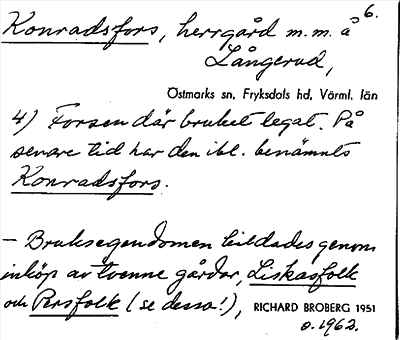 6.
Konradsfors, herrgård m.m. å
Långerud,
Östmarks sn, Fryksdals hd, Värml. län
4) Forsen där bruket legat. På
senare tid har den ibl. benämnts
Konradsfors.
– Bruksegendomen bildades genom
inköp av tvenne gårdar, Liskasfolk
och Persfolk (se dessa!), RICHARD BROBERG 1951
o. 1962.